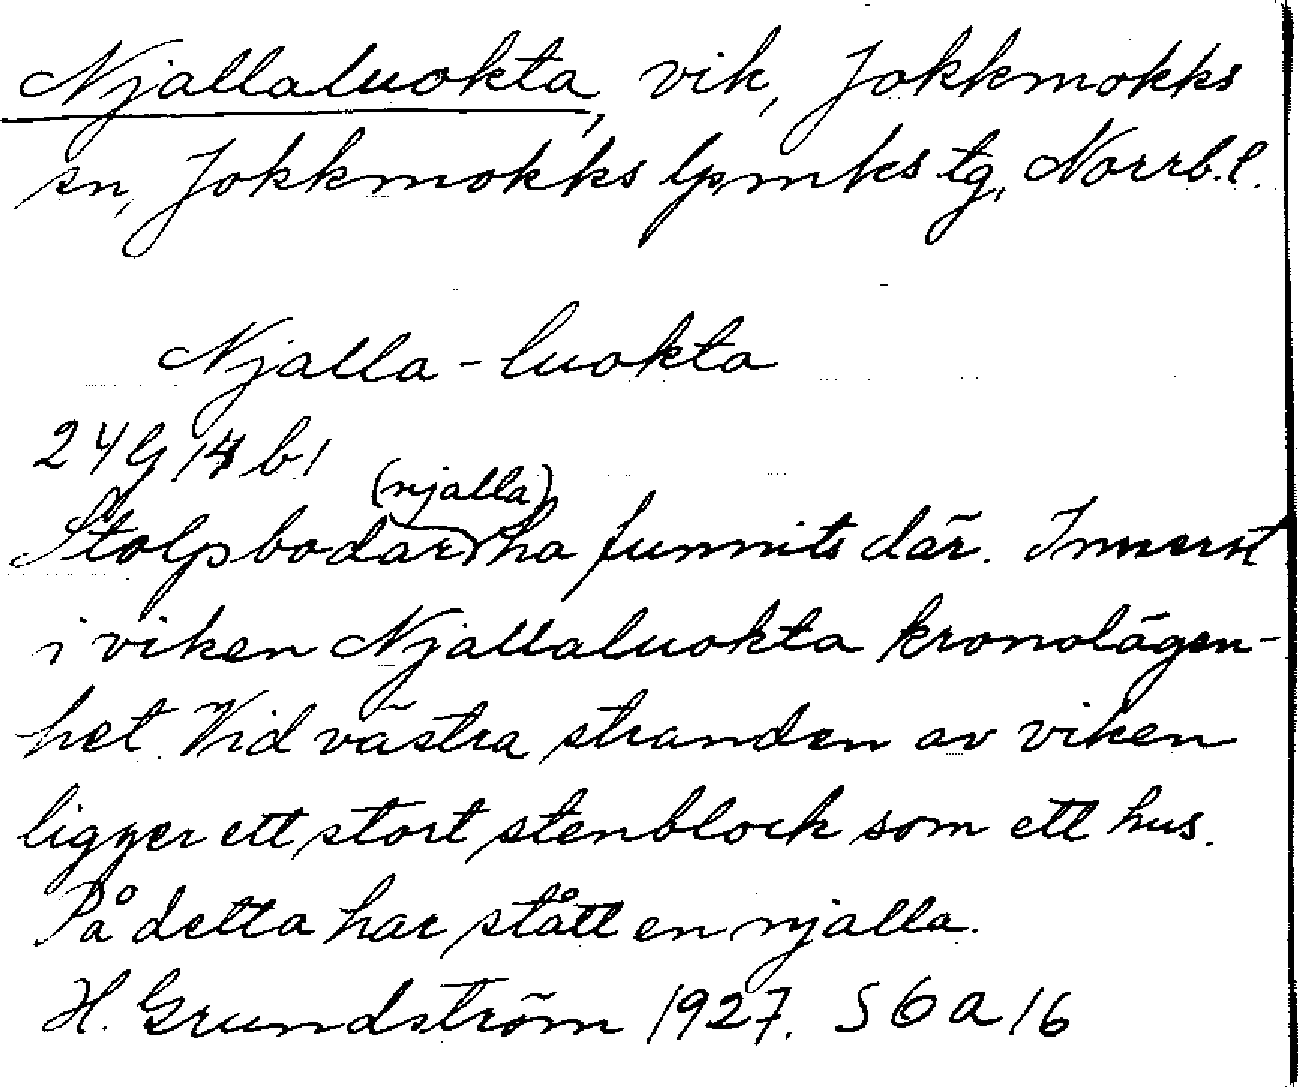 Njallaluokta, vik, Jokkmokks
sn, Jokkmokks lpmks tg, Norrb.l.
Njalla-luokta
24 G 14 b1
(njalla)
Stolpbodar ha funnits där. Innerst
i viken Njallaluokta kronolägen-
het. Vid västra stranden av viken
ligger ett stort stenblock som ett hus.
På detta har stått en njalla.
H. Grundström 1927. S 6 a 16